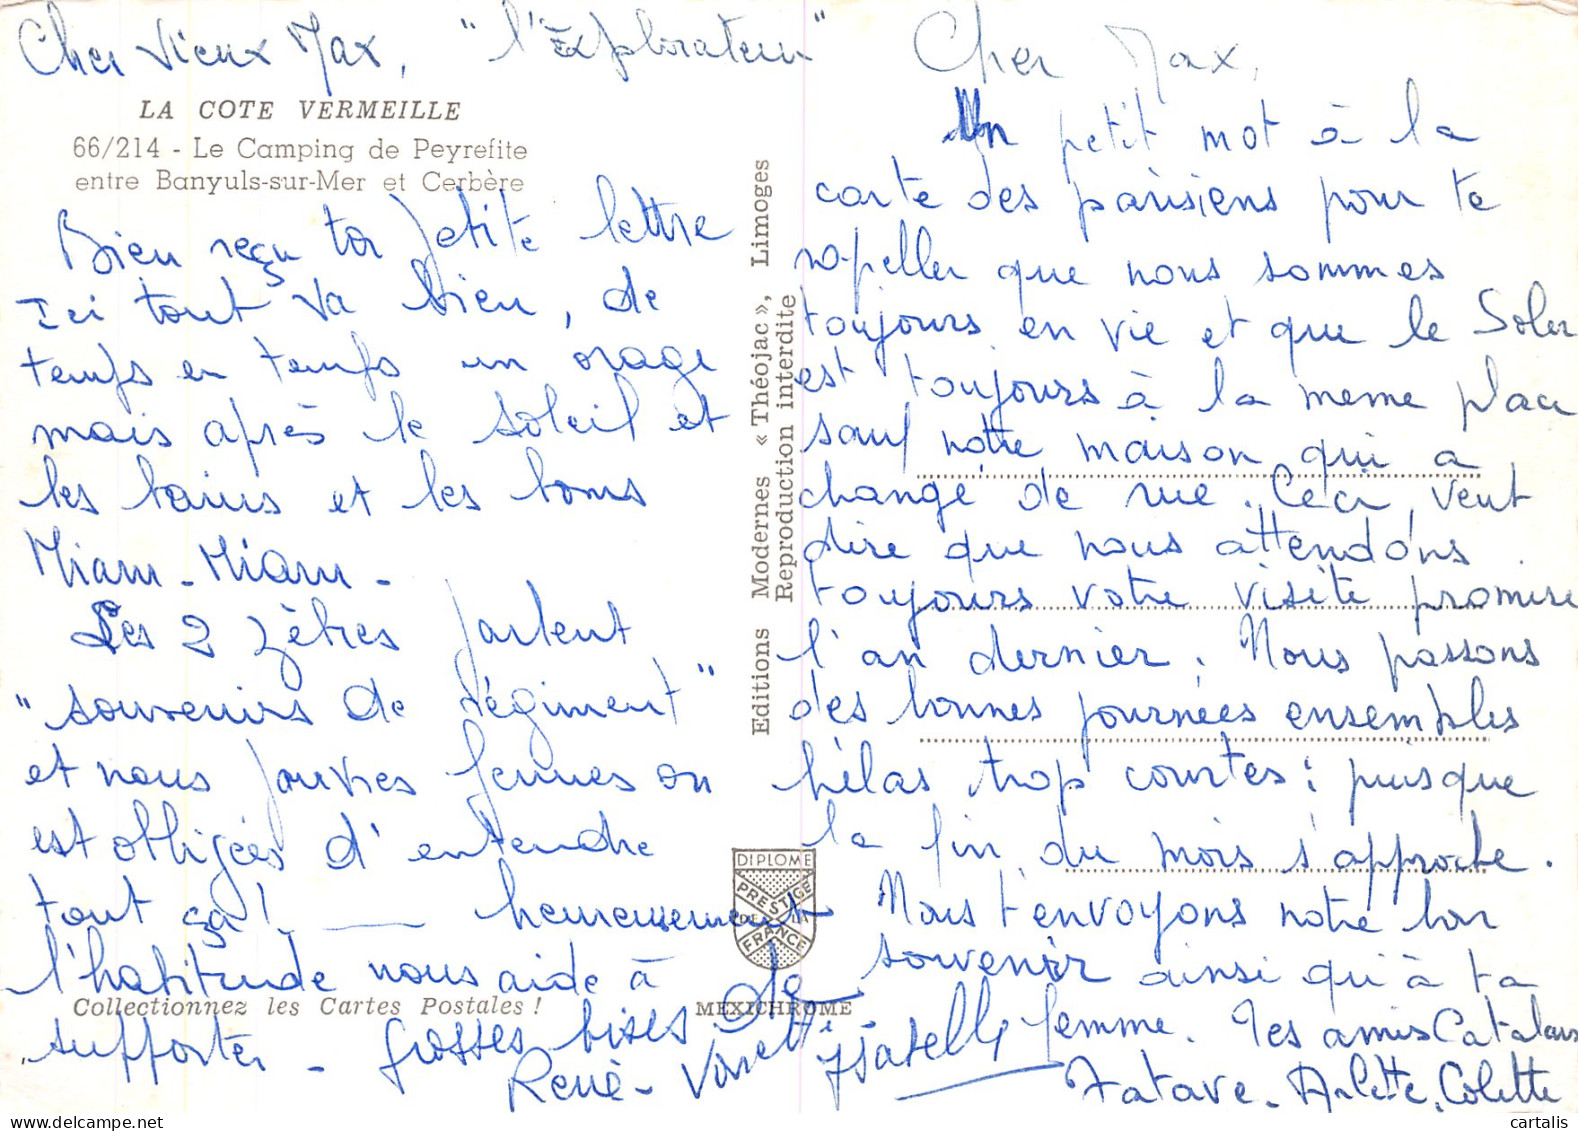 Cher Vieux Max, "l'Explorateur"
LA COTE VERMEILLE
66/214 - Le Camping de Peyrefite
entre Banyuls-sur-Mer et Cerbère
Bien reçu ta petite lettre
Ici tout va bien, de
temps en temps un orage
mais après le soleil et
les bains et les bons
Miam-Miam-
Les 2 zètres parlent
"souvenirs de régiment"
et nous pauvres femmes on
est obligées d'entendre
tout ça! heureusement
l'habitude nous aide à
supporter - grosses bises de
René - Isabelle
Collectionnez les Cartes Postales !
Editions Modernes « Théojac », Limoges
Reproduction interdite
DIPLOME
PRESTIGE
DE LA
FRANCE
MEXICHROME
Cher Max,
Un petit mot à la
carte des parisiens pour te
rappeller que nous sommes
toujours en vie et que le Soler
est toujours à la meme place
sauf notre maison qui a
changé de rue. Ceci veut
dire que nous attendons
toujours votre visite promise
l'an dernier. Nous passons
des bonnes journées ensembles
hélas trop courtes; puisque
la fin du mois s'approche.
Nous t'envoyons notre bon
souvenir ainsi qu'à ta
femme. Tes amis Catalans
Tatave. Arlette. Colette